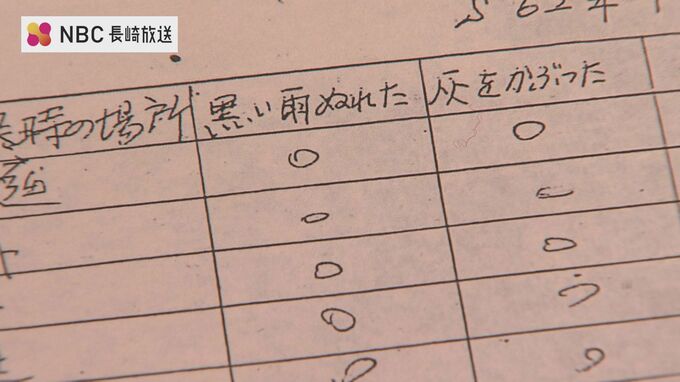 NBC 長崎放送
S 62年
時の場所 黒い雨ぬれた 灰をかぶった
○ ○
○ ー
○ ○
○